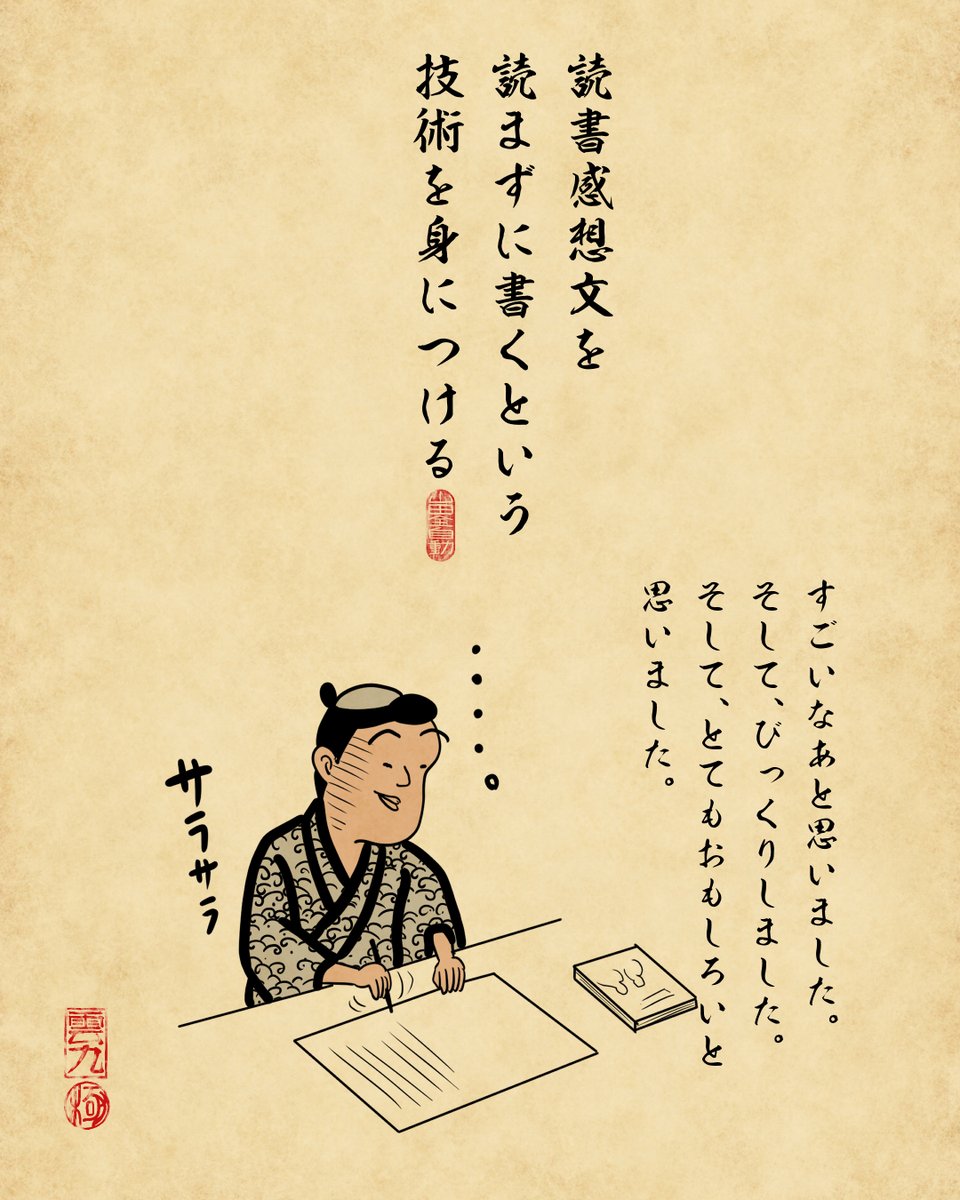 読書感想文を
読まずに書くという
技術を身につける
すごいなぁと思いました。
そして、びっくりしました。
そして、とてもおもしろいと
思いました。
・・・・。
サラサラ